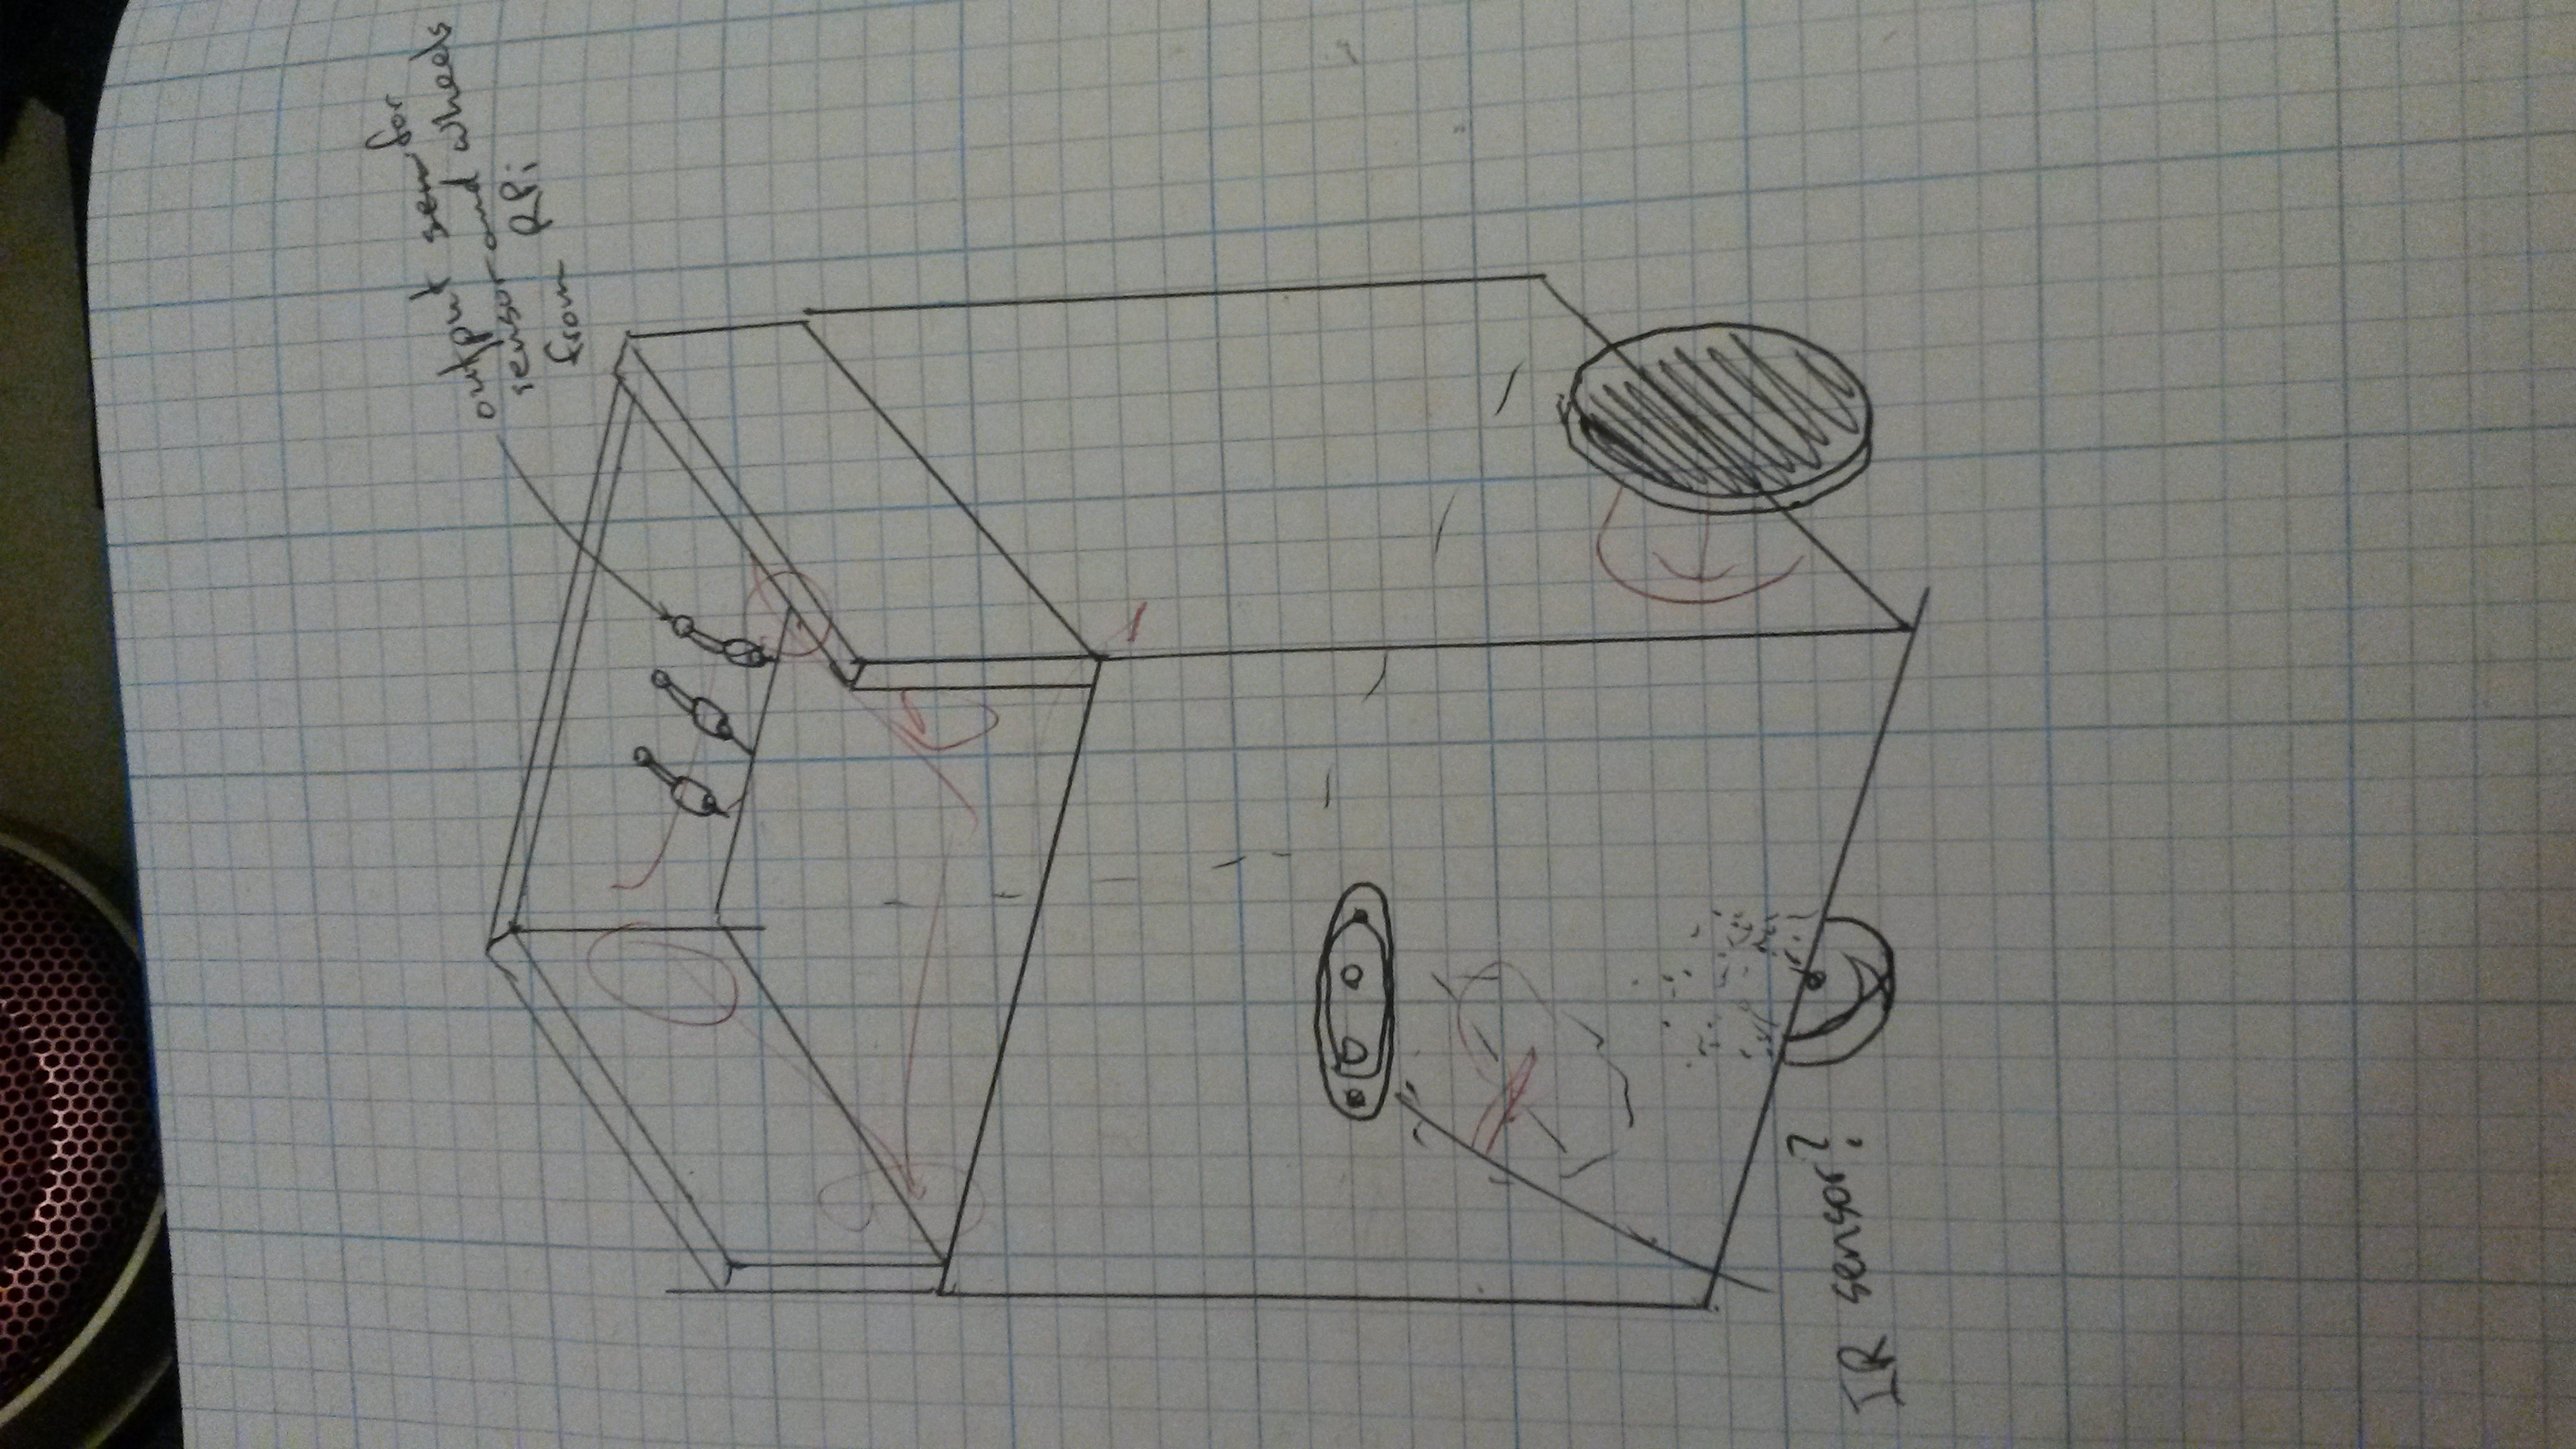 output for
sensor and wheels
from RPi
IR sensor?